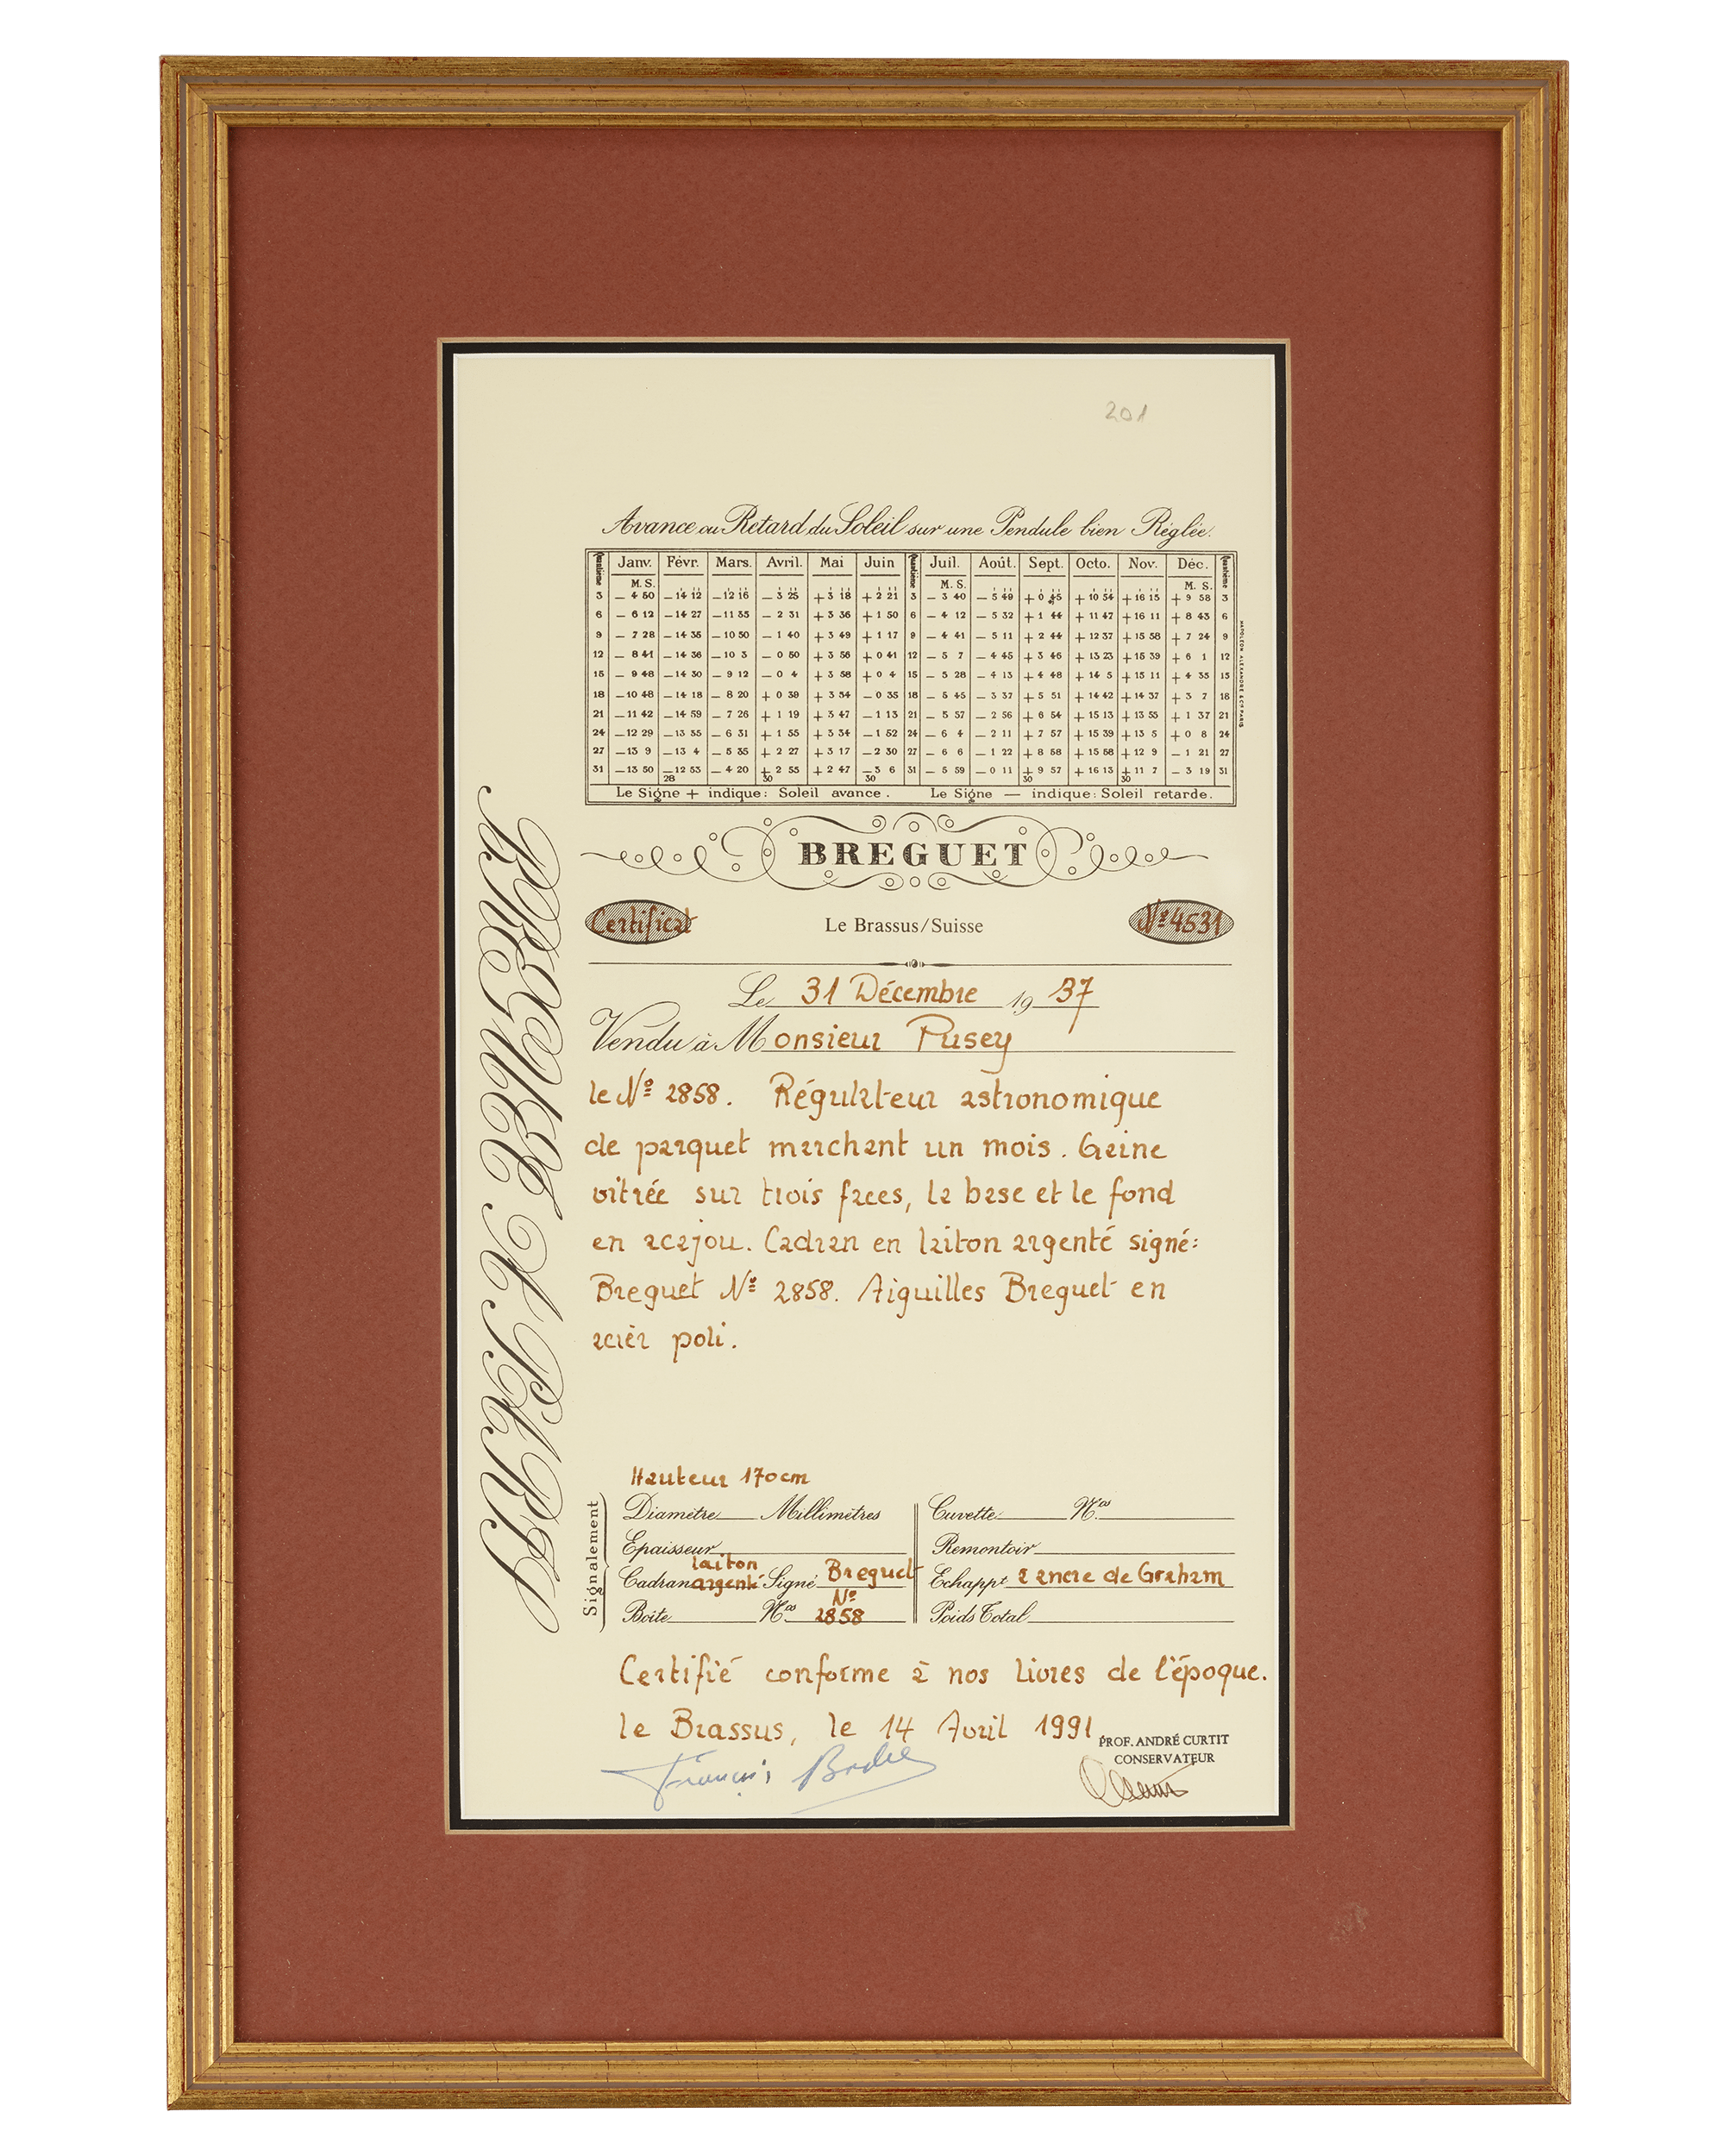 201
Avance ou Retard du Soleil sur une Pendule bien Réglée.
Quantième Janv. Févr. Mars. Avril. Mai Juin Quantième Juil. Août. Sept. Octo. Nov. Déc. Quantième
M. S. M. S. M. S.
3 — 4 50 — 14 12 — 12 16 — 3 25 + 3 18 + 2 21 3 — 3 40 — 5 49 + 0 45 + 10 54 + 16 15 + 9 58 3
6 — 6 12 — 14 27 — 11 35 — 2 31 + 3 36 + 1 50 6 — 4 12 — 5 32 + 1 44 + 11 47 + 16 11 + 8 43 6
9 — 7 28 — 14 35 — 10 50 — 1 40 + 3 49 + 1 17 9 — 4 41 — 5 11 + 2 44 + 12 37 + 15 58 + 7 24 9
12 — 8 41 — 14 36 — 10 3 — 0 50 + 3 56 + 0 41 12 — 5 7 — 4 45 + 3 46 + 13 23 + 15 39 + 6 1 12
15 — 9 48 — 14 30 — 9 12 — 0 4 + 3 58 + 0 4 15 — 5 28 — 4 13 + 4 48 + 14 5 + 15 11 + 4 35 15
18 — 10 48 — 14 18 — 8 20 + 0 39 + 3 54 — 0 35 18 — 5 45 — 3 37 + 5 51 + 14 42 + 14 37 + 3 7 18
21 — 11 42 — 14 59 — 7 26 + 1 19 + 3 47 — 1 13 21 — 5 57 — 2 56 + 6 54 + 15 13 + 13 55 + 1 37 21
24 — 12 29 — 13 35 — 6 31 + 1 55 + 3 34 — 1 52 24 — 6 4 — 2 11 + 7 57 + 15 39 + 13 5 + 0 8 24
27 — 13 9 — 13 4 — 5 35 + 2 27 + 3 17 — 2 30 27 — 6 6 — 1 22 + 8 58 + 15 58 + 12 9 — 1 21 27
31 — 13 50 — 12 53 — 4 20 + 2 55 + 2 47 — 3 6 31 — 5 59 — 0 11 + 9 57 + 16 13 + 11 7 — 3 19 31
28 30 30 30 30
Le Signe + indique: Soleil avance. Le Signe — indique: Soleil retarde.
NAPOLEON ALEXANDRE & Cie PARIS
BREGUET
Certificat Le Brassus/Suisse Nº 4531
BREGUET A PARIS
Le 31 Décembre 1937
Vendu à Monsieur Pusey
le Nº 2858. Régulateur astronomique
de parquet marchant un mois. Gaine
vitrée sur trois faces, la base et le fond
en acajou. Cadran en laiton argenté signé:
Breguet Nº 2858. Aiguilles Breguet en
acier poli.
Hauteur 170cm
Signalement
Diamètre Millimètres Cuvette Nos
Epaisseur Remontoir
laiton
Cadran argenté Signé Breguet Echappt à ancre de Graham
Nº
Boîte Nos 2858 Poids Total
Certifié conforme à nos livres de l'époque.
le Brassus, le 14 Avril 1991
PROF. ANDRÉ CURTIT
CONSERVATEUR